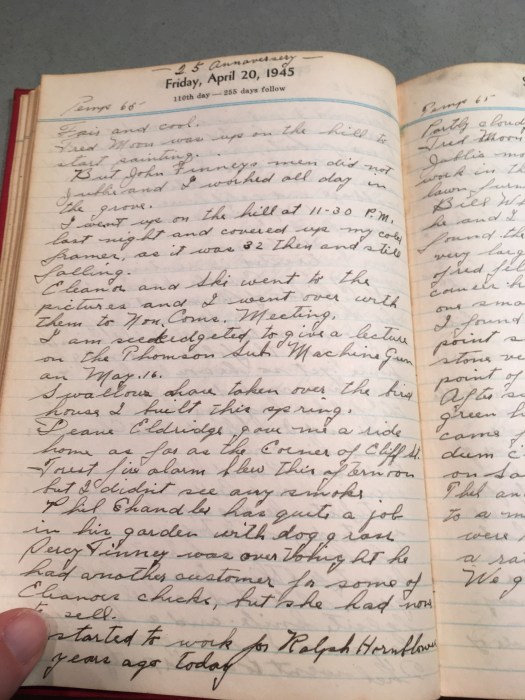 25 Annaversery
Friday, April 20, 1945
110th day — 255 days follow
Temp 66-
Fair and cool.
Fred Moon was up on the hill to
start painting.
But John Finneys men did not
Jubke and I worked all day in
the grove.
I went up on the hill at 11-30 P.M.
last night and covered up my cold
framer, as it was 32 then and still
falling.
Eleanor and Ski went to the
pictures and I went over with
them to Non. Coms. Meeting.
I am to give a lecture
on the Thomson Sub. Machine Gun
an May. 16.
Swallows have taken over the bird
house I built this spring.
Deane Eldridge gave me a ride
home as far as the Corner of Cliff St.
Forest fire alarm blew this afternoon
but I didn't see any smoke
Phil Chandler has quite a job
in his garden with dogg grass
Percy Finney was over thought he
had another customer for some of
Eleanors chicks, but she had non
to sell.
started to work for Ralph Hornblower
years ago today
Temp 65-
Partly cloud
Fred Moon
work in th
lawn
Bill W
he and I
found th
very larg
of red fel
our sma
I found
point
stone
point of
After su
green
came
on Sa
Phil an
to a m
were
a ra
We g